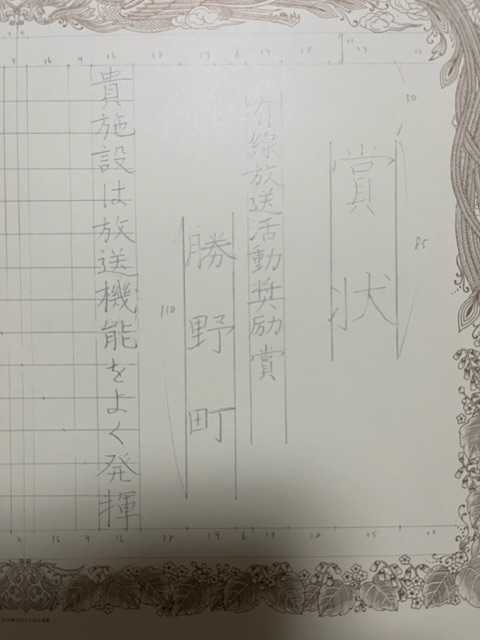 賞状
有線放送活動奨励賞
勝野町
貴施設は放送機能をよく発揮